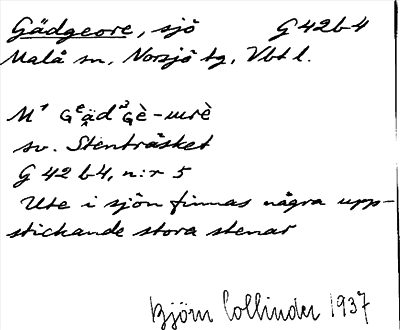 Gädgeore, sjö G42b4
Malå sn, Norsjö tg, Vbt l.
M¹ Gᵉäd²Gè-urè
sv. Stenträsket
G 42 b4, n:r 5
Ute i sjön finnas några upp-
stickande stora stenar
Björn Collinder 1937